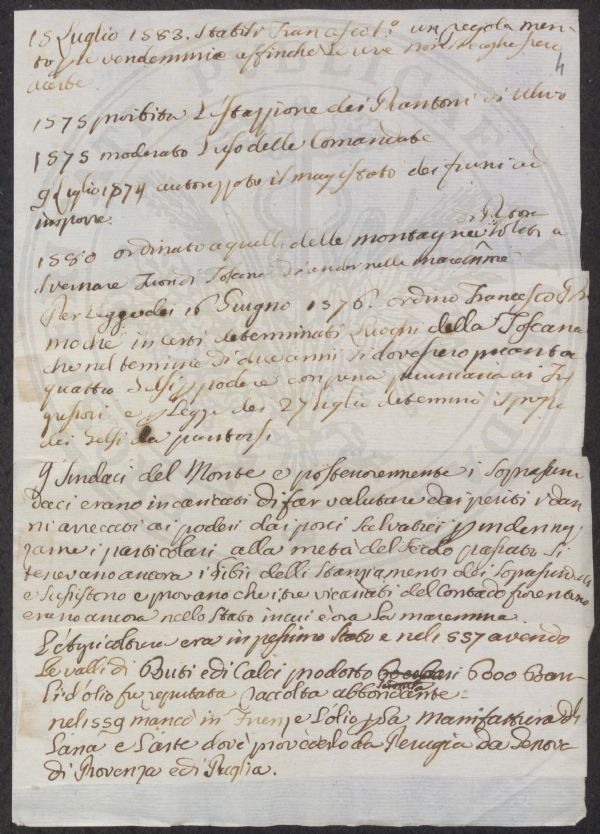 15 Luglio 1583. Stabilì Francesco 1.º un regolamen-
to p le vendemmie affinchè le uve non si
acerbe.
4
1575 proibita l'estrazione dei Piantoni di Ulivo
1575 moderato l'uso delle Comandate
9 Luglio 1574 autorizzato il magistrato dei fiumi ad
imporre.
1580 ordinato a quelli delle montagne di Pistoia soliti a
svernare fuori di Toscana di andar nelle maremme
Per Legge dei 16 Giugno 1576. ordinò Francesco Pri
mo che in certi determinati Luoghi della Toscana
che nel termine di due anni si dovessero piantar
quattro Gelsi p podere con pena pecuniaria ai Tras
gressori e p Legge dei 27 luglio determinò il prezzo
dei Gelsi da piantarsi
I Sindaci del Monte e posteriormente i Soprasin
daci erano incaricati di far valutare dai periti i dan
ni arrecati ai poderi dai porci salvatici p indenniz
zarne i particolari alla metà del Secolo passato Si
tenevano ancora i libri delli Stanziamenti dei Soprasindaci
e sussistono e provano che i tre vicariati del Contado fiorentino
erano ancora nello Stato in cui è ora La maremma
L'Agricoltura era in pessimo stato e nel 1557 avendo
Le valli di Buti e di Calci prodotto 6000 Bari
li d'olio fu reputata raccolta abbondante
nel 1559 mancò in Firenze l'olio p la manifattura di
Lana e l'arte dovè provederlo da Perugia da Genova
di Provenza e di Puglia.